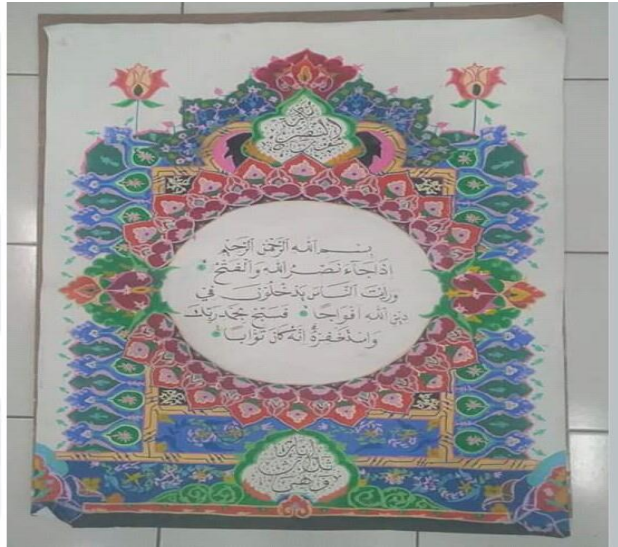 بسم الله الرحمن الرحيم
إذا جاء نصر الله والفتح
ورايت الناس يدخلون في
دين الله افواجا فسبح بحمد ربك
واستغفره انه كان توابا